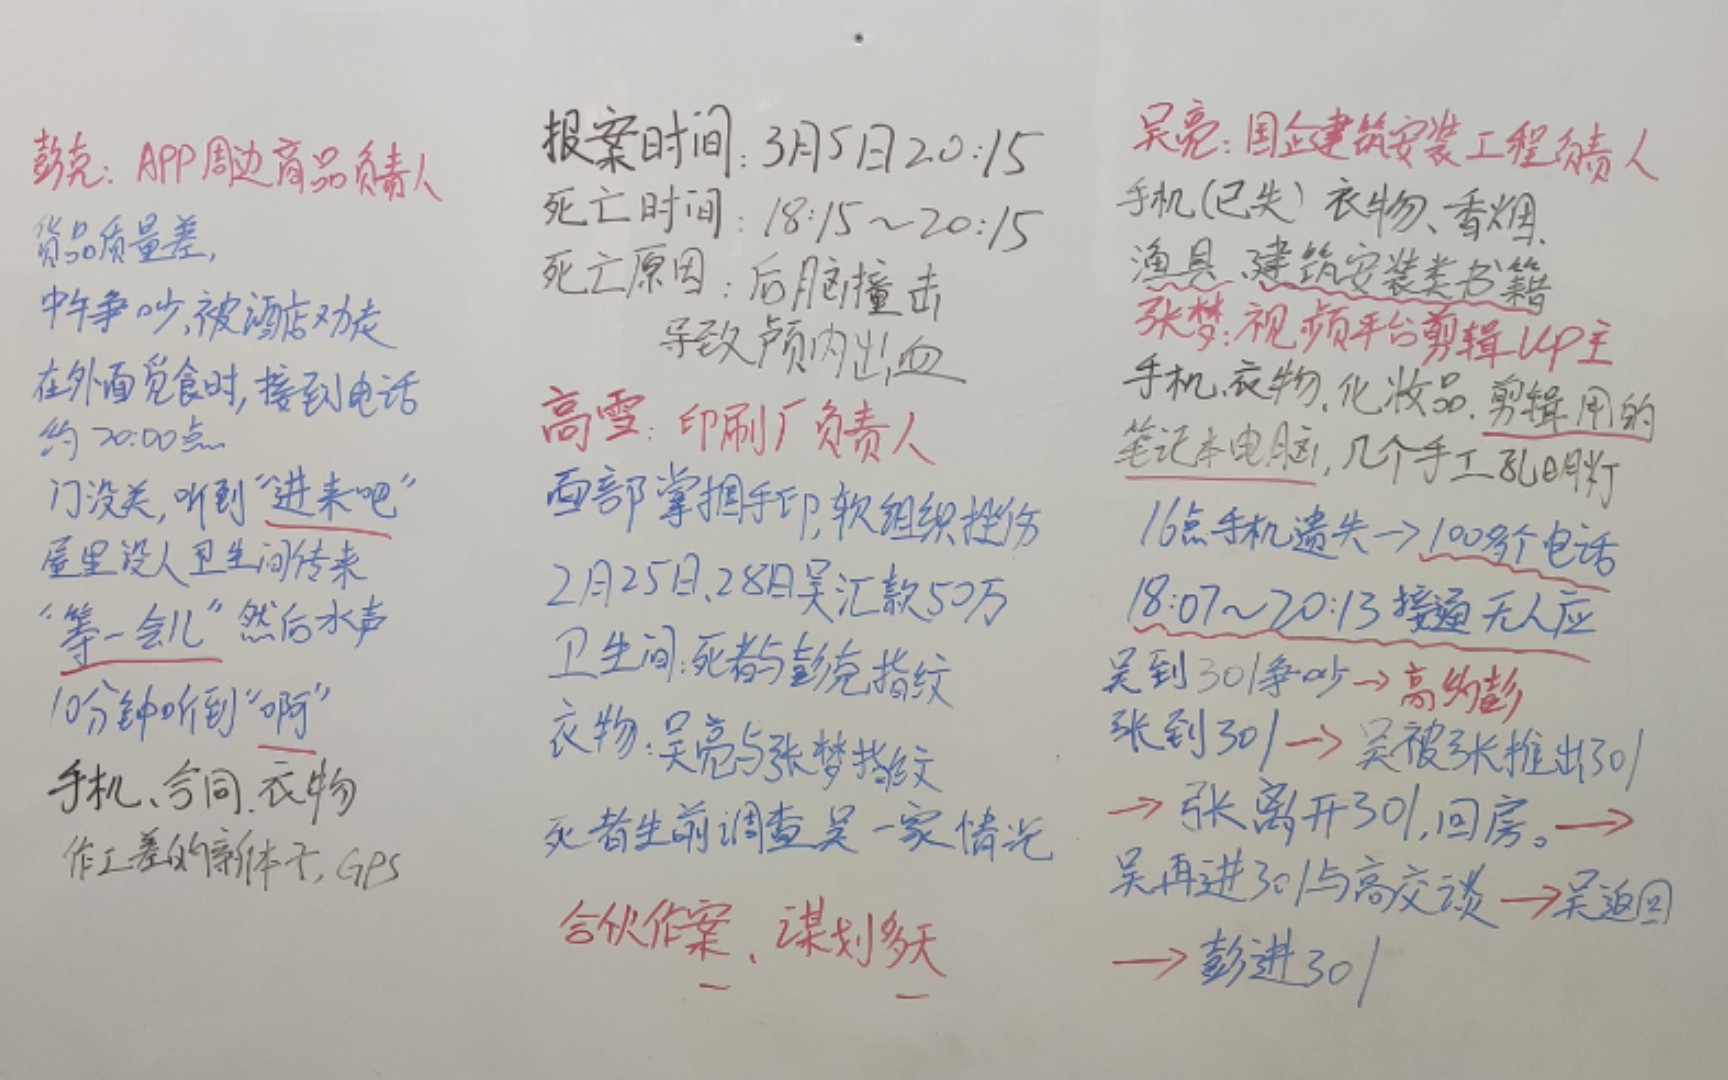 彭克：APP周边商品负责人
货品质量差，
中午争吵、被酒店劝走
在外面觅食时，接到电话
约20:00点
门没关，听到“进来吧”
屋里没人卫生间传来
“等一会儿”然后水声
10分钟听到“啊”
手机、合同、衣物
作工差的新体下，GPS
报案时间：3月5日20:15
死亡时间：18:15～20:15
死亡原因：后脑撞击
导致颅内出血
高雪：印刷厂负责人
面部掌掴手印，软组织挫伤
2月25日、28日吴汇款50万
卫生间：死者与彭克指纹
衣物：吴亮与张梦指纹
死者生前调查吴一家情况
合伙作案、谋划多天
吴亮：国企建筑安装工程负责人
手机（已失）衣物、香烟、
渔具、建筑安装类书籍
张梦：视频平台剪辑UP主
手机、衣物、化妆品、剪辑用的
笔记本电脑，几个手工孔明灯
16点手机遗失→100多个电话
18:07～20:13接通无人应
吴到301争吵→高约彭
张到301→吴被张推出301
→张离开301，回房。→
吴再进301与高交谈→吴返回
→彭进301